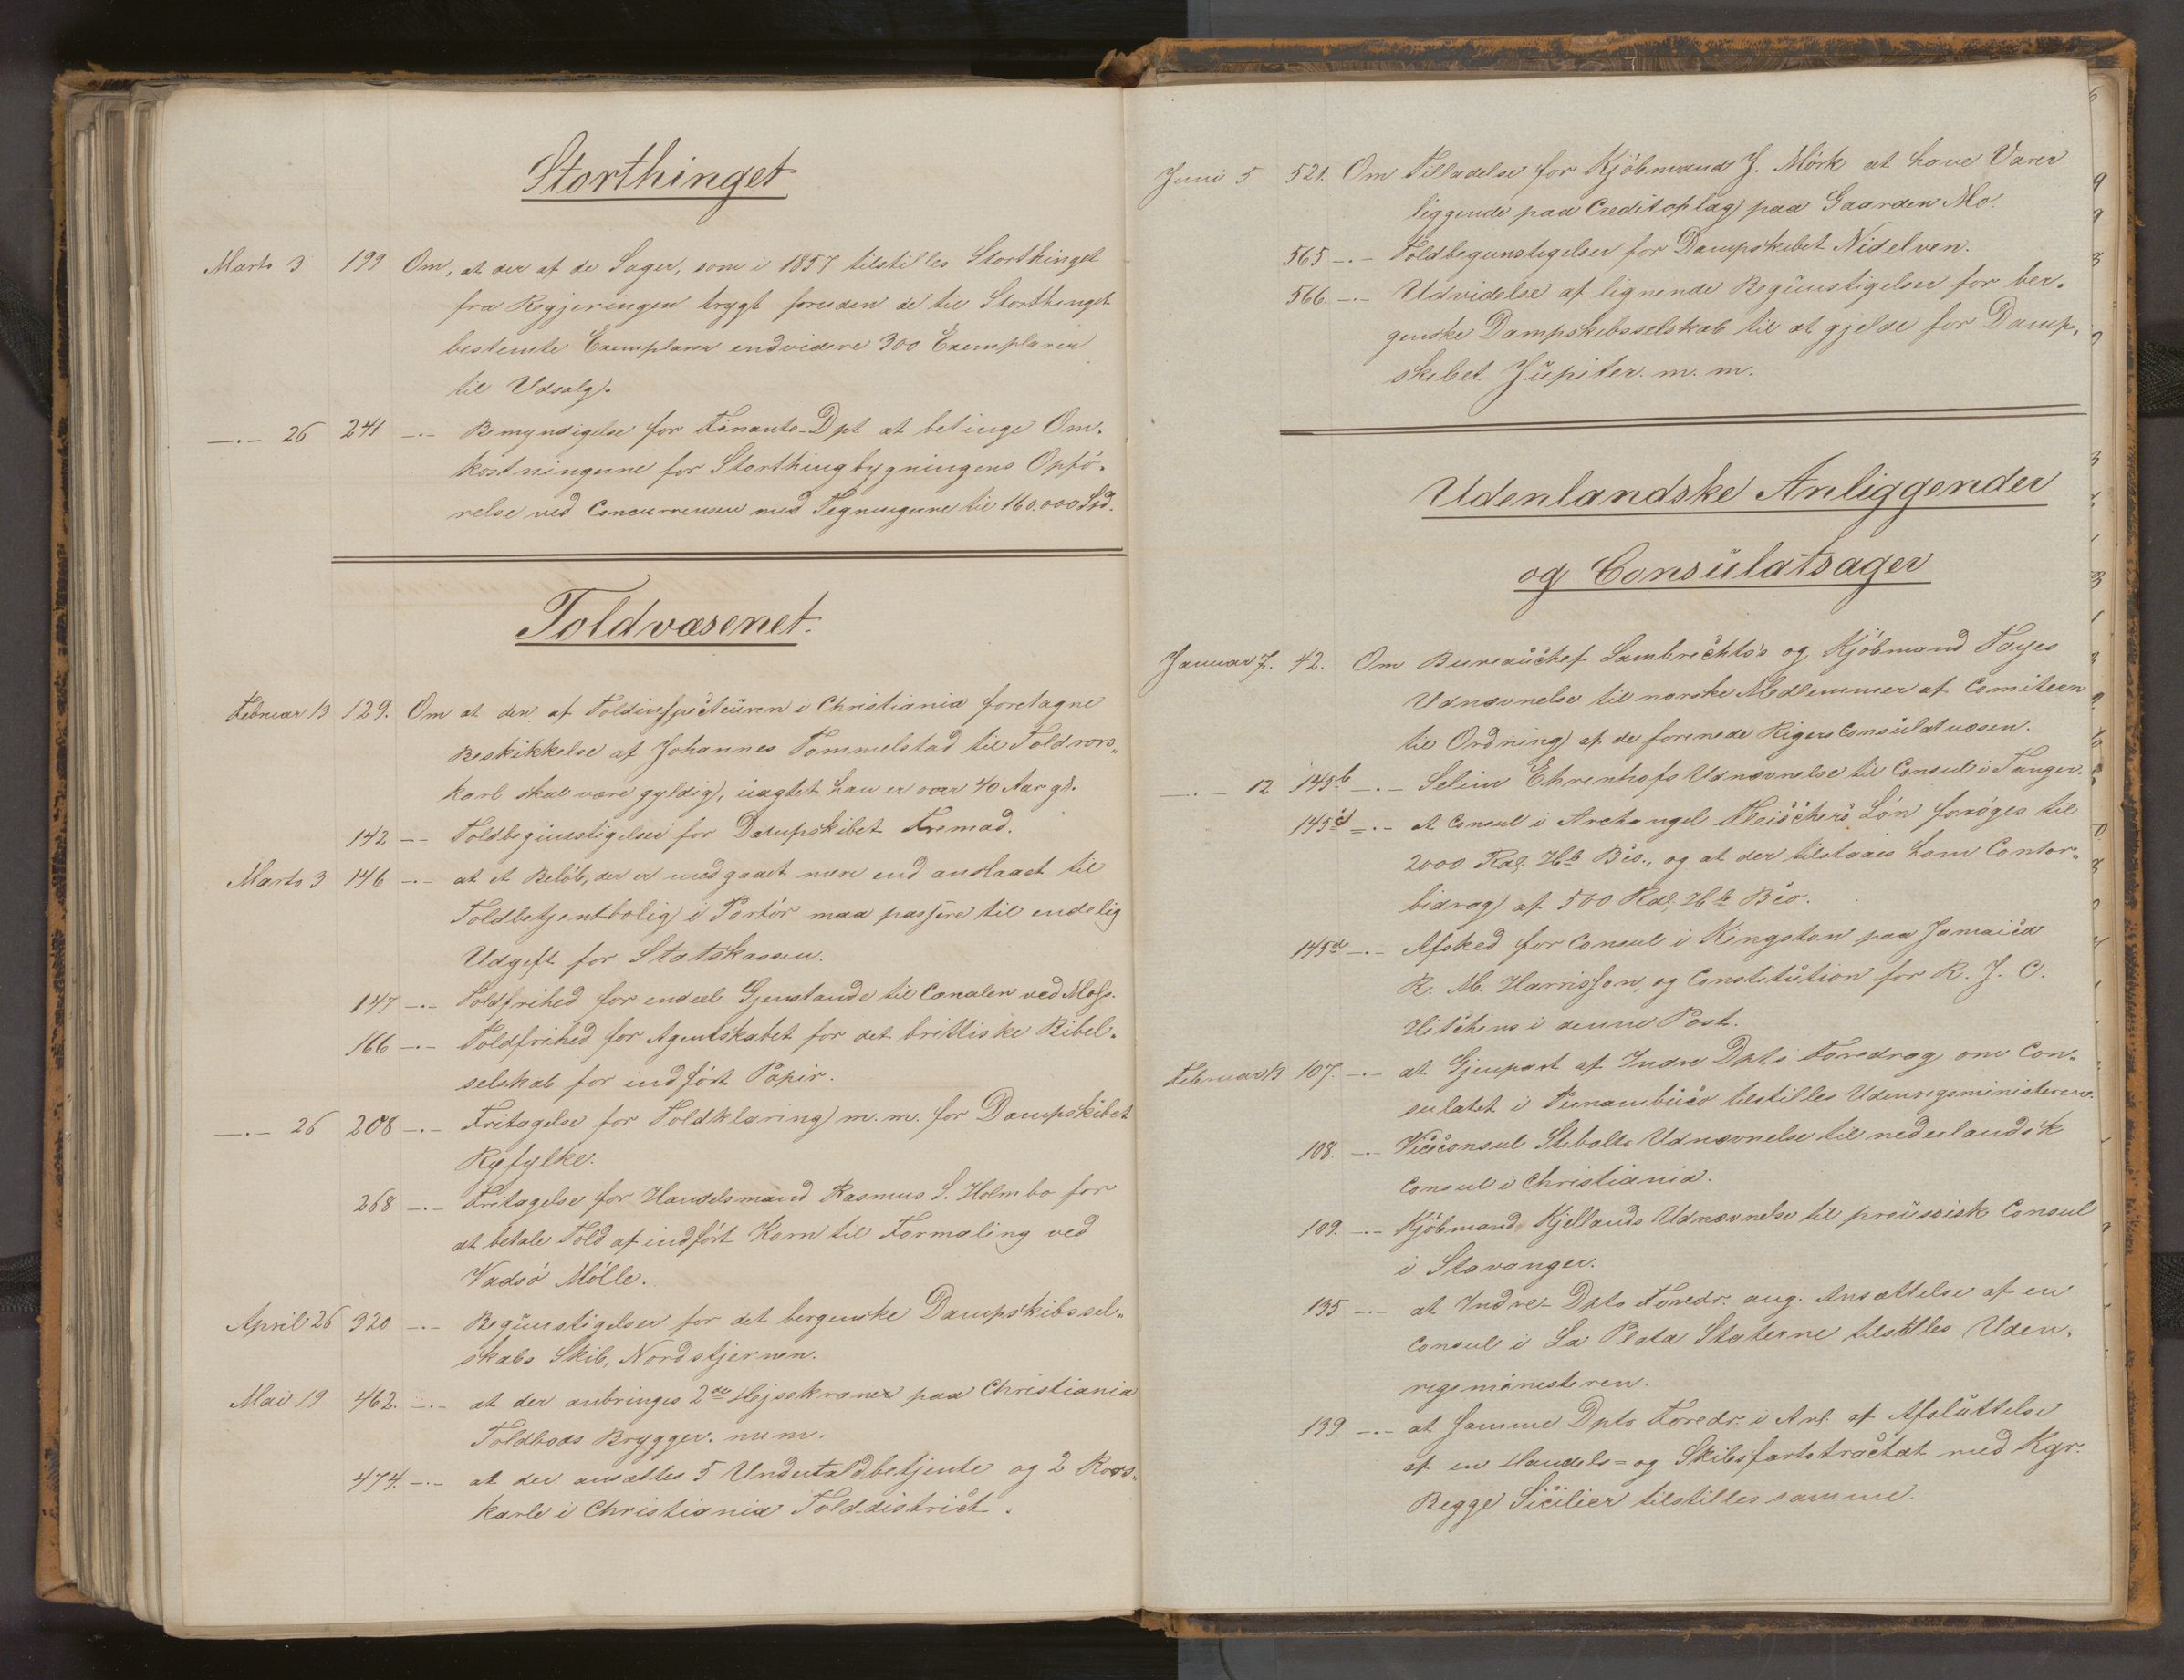 Storthinget
Marts 3 199 Om, at der af de Sager, som i 1857 tilstilles Storthinget
fra Regjeringen trygt foruden de til Storthinget
bestemte Exemplarer endvidere 300 Exemplarer
til Udsalg.
—.— 26 241 —.— Bemyndigelse for Finants-Dpt at betinge Om-
kostningerne for Storthingbygningens Opfö-
relse ved Concurrencen med Tegningerne til 160.000 Spd.
Toldvæsenet.
Februar 13 129. Om at den af Toldinspecteuren i Christiania foretagne
Beskikkelse af Johannes Tommelstad til Toldrors-
karl skal være gyldig, uagtet han er over 40 Aar gl.
142 —.— Toldbegunstigelser for Dampskibet Fremad.
Marts 3 146 —.— at et Belöb, der er medgaaet mere end anslaaet til
Toldbetjentbolig i Portör maa passere til endelig
Udgift for Statskassen.
147 —.— Toldfrihed for endeel Gjenstande til Canalen ved Moss.
166 —.— Toldfrihed for Agentskabet for det brittiske Bibel-
selskab for indfört Papir.
—.— 26 208 —.— Fritagelse for Toldklaring m. m. for Dampskibet
Ryfylke.
268 —.— Fritagelse for Handelsmand Rasmus S. Holmbo for
at betale Told af indfört Korn til Formaling ved
Vadsö Mölle.
April 26 320 —.— Begunstigelser for det bergenske Dampskibssel-
skabs Skib, Nordstjernen.
Mai 19 462. —.— at der anbringes 2de Hejsekraner paa Christiania
Toldbods Brygger. m m.
474. —.— at der ansættes 5 Undertoldbetjente og 2 Rors-
karle i Christiania Tolddistrict.
Juni 5 521. Om Tilladelse for Kjöbmand J. Mörk at have Varer
liggende paa Creditoplag paa Gaarden Mo.
565 —.— Toldbegunstigelser for Dampskibet Nidelven.
566. —.— Udvidelse af lignende Begunstigelser for ber-
genske Dampskibsselskab til at gjelde for Damp-
skibet Jupiter. m. m.
Udenlandske Anliggender
og Consulatsager
Januar 7. 42. Om Bureauchef Lambrechts's og Kjöbmand Tayes
Udnævnelse til norske Medlemmer af Comiteen
til Ordning af de forenede Rigers Consulatvæsen.
—.— 12 145b —.— Selim Ehrenhofs Udnævnelse til Consul i Tanger.
145c —.— At Consul i Archangel Fleischers Lön foröges til
2000 Rdl. Hb Bco., og at der tilstaaes ham Contor-
bidrag af 500 Rdl. Hb Bco.
145d —.— Afsked for Consul i Kingston paa Jamaica
R. M. Harrisson, og Constitution for R. J. C.
Hitchins i denne Post.
Februar 13 107. —.— at Gjenpart af Indre Dpts Foredrag om Con-
sulatet i Pernambuco tilstilles Udenrigsministeren.
108. —.— Viceconsul Stibolts Udnævnelse til nederlandsk
Consul i Christiania.
109. —.— Kjöbmand Kjellands Udnævnelse til preussisk Consul
i Stavanger.
135 —.— at Indre-Dpts Foredr. ang. Ansættelse af en
Consul i La Plata Staterne tilstilles Uden-
rigsministeren.
139. —.— at samme Dpts Foredr. i Anl. af Afsluttelse
af en Handels= og Skibsfartstractat med Kgr.
Begge Sicilier tilstilles samme.